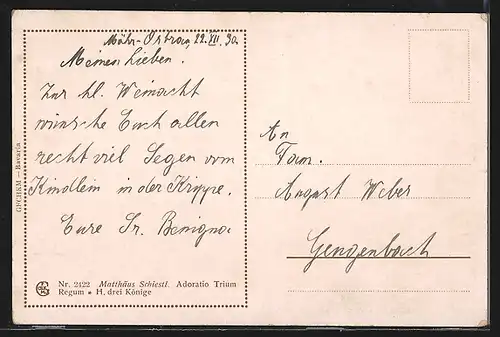 Mähr-Ostrau, 22. XII. 30.
Meinen Lieben.
Zur hl. Weinacht
wünsche Euch allen
recht viel Segen vom
Kindlein in der Krippe.
Eure Sr. Benigna
An
Fam.
August Weber
Gengenbach
Nr. 2122 Matthäus Schiestl. Adoratio Trium
Regum • H. drei Könige